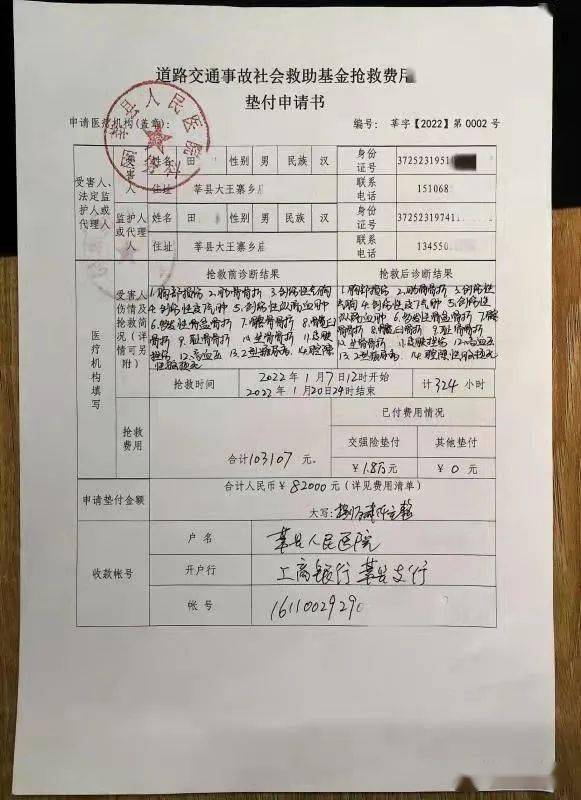 道路交通事故社会救助基金抢救费用
垫付申请书
申请医疗机构(盖章): 编号: 莘字【2022】第 0002 号
莘县人民医院
医务科
受害人、法定监护人或代理人
受害人 姓名 田 性别 男 民族 汉 身份证号 37252319510
住址 莘县大王寨乡 联系电话 151068
监护人或代理人 姓名 田 性别 男 民族 汉 身份证号 37252319741
住址 莘县大王寨乡 联系电话 134550
医疗机构填写
受害人伤情及抢救简况(详情可另附)
抢救前诊断结果 抢救后诊断结果
1.胸部损伤 2.肋骨骨折 3.创伤性气胸
4.创伤性皮下气肿 5.创伤性双肺血肿
6.多发性骨盆骨折 7.髂骨骨折 8.髋臼骨
骨折 9.耻骨骨折 10.坐骨骨折 11.皮肤
挫伤 12.高血压 13.2型糖尿病 14.腔隙
性脑梗死
1.胸部损伤 2.肋骨骨折 3.创伤性
气胸 4.创伤性皮下气肿 5.创伤性
双肺血肿 6.多发性骨盆骨折 7.髂
骨骨折 8.髋臼骨折 9.耻骨骨折
10.坐骨骨折 11.皮肤挫伤 12.高血压
13.2型糖尿病 14.腔隙性脑梗死
抢救时间 2022 年 1 月 7 日 12 时开始
2022 年 1 月 20 日 24 时结束
计 324 小时
抢救费用 合计 103107 元。
已付费用情况
交强险垫付 其他垫付
¥ 1.8万 元 ¥ 0 元
申请垫付金额 合计人民币¥ 82000 元(详见费用清单)
大写: 捌万贰仟元整
收款帐号
户 名 莘县人民医院
开户行 工商银行莘县支行
帐 号 1611002929